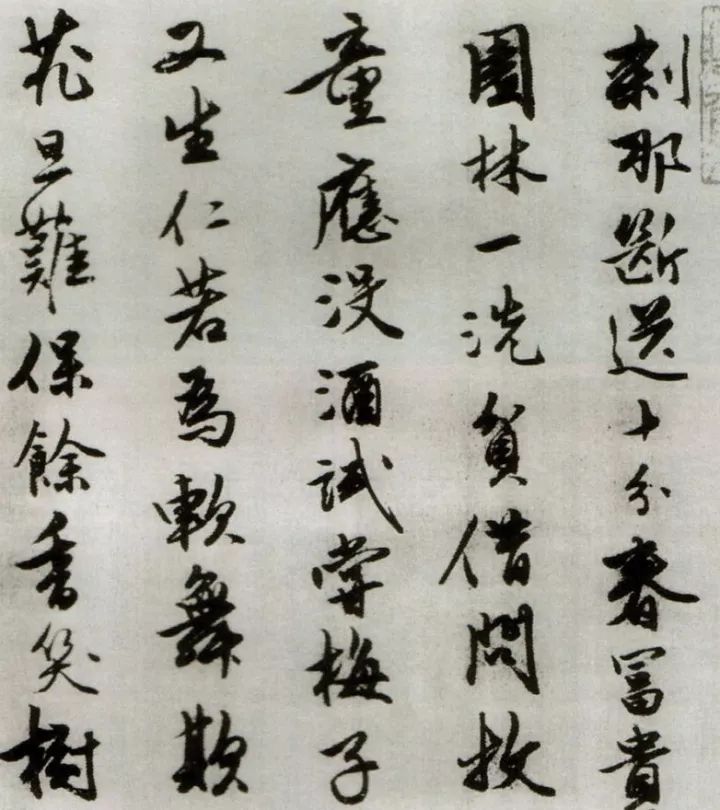 刹那斷送十分春富貴
園林一洗貧借問牧
童應没酒試嘗梅子
又生仁若爲軟舞欺
花旦難保餘香笑樹